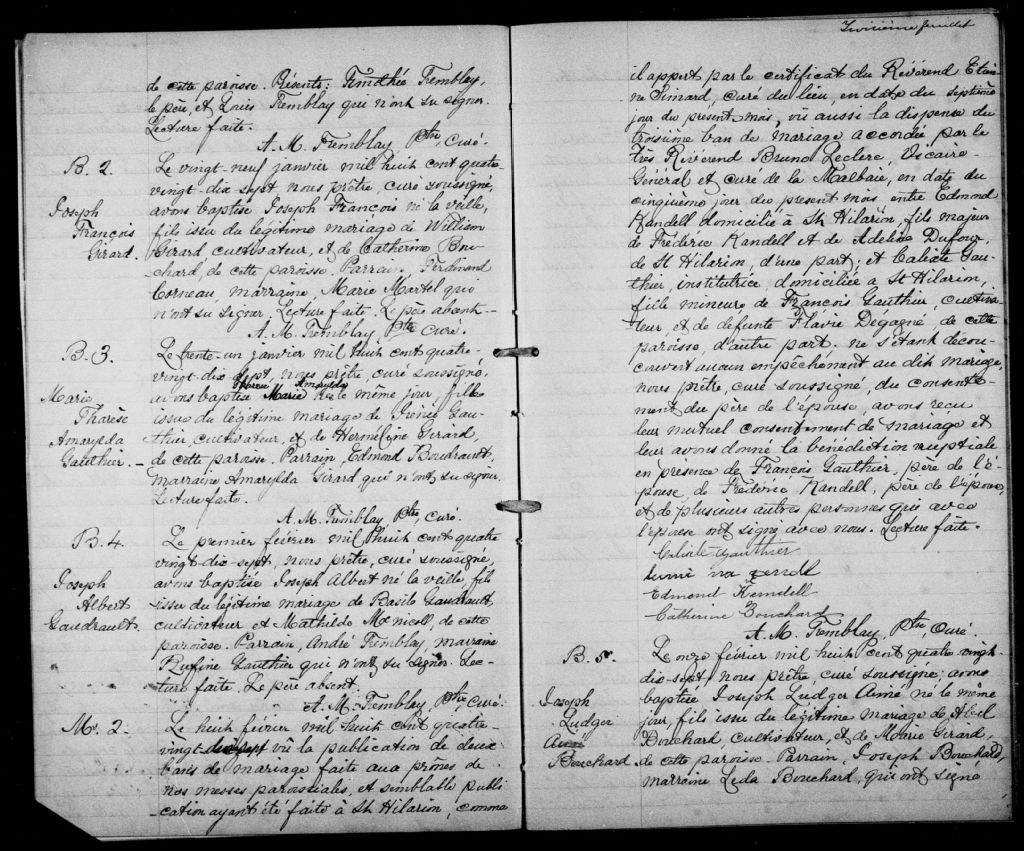 de cette paroisse. Présents: Timothée Tremblay,
le père, et Louis Tremblay qui n'ont su signer.
Lecture faite.
A. M. Tremblay, Ptre, Curé.
B. 2.
Joseph
François
Girard.
Le vingt-neuf janvier mil huit cent quatre-
vingt-dix-sept nous prêtre, curé soussigné,
avons baptisé Joseph François né la veille,
fils issu du légitime mariage de William
Girard, cultivateur, et de Catherine Bou-
chard, de cette paroisse. Parrain, Ferdinand
Corneau, marraine, Marie Martel qui
n'ont su signer. Lecture faite. Le père absent.-
A. M. Tremblay Ptre Curé.
B. 3.
Marie
Tharèse
Amarylda
Gauthier. -
Le trente-un janvier mil huit cent quatre-
vingt-dix sept, nous prêtre, curé soussigné,
Amarylda
avons baptisé Marie née le même jour, fille
issue du légitime mariage de Gau-
thier, cultivateur, et de Herméline Girard,
de cette paroisse. Parrain, Edmond Boudreault,
marraine Amarylda Girard qui n'ont su signer.
Lecture faite.
A. M. Tremblay, Ptre, Curé.
B. 4.
Joseph
Albert
Gaudrault.
Le premier février mil huit cent quatre
vingt-dix-sept, nous prêtre, curé soussigné,
avons baptisé Joseph Albert né la veille, fils
issu du légitime mariage de Basile Gaudrault,
cultivateur et Mathilde McNicoll de cette
paroisse. Parrain, André Tremblay, marraine
Rufine Gauthier qui n'ont su signer. Lec-
ture faite. Le père absent.
A. M. Tremblay, Ptre, Curé.
M. 2.
Le huit février mil huit cent quatre
vingt-dix-sept vu la publication de deux
bans de mariage faite aux prônes de
nos messes paroissiales, et semblable publi
cation ayant été faite à St Hilarion, comme
Troisième feuillet
il appert par le certificat du Révérend Etien
ne Simard, curé du lieu, en date du septième
jour du présent mois, vu aussi la dispense du
troisième ban de mariage accordée par le
Très Révérend Bruno Leclerc, Vicaire-
Général et curé de la Malbaie, en date du
cinquième jour du présent mois, entre Edmond
Kandell domicilié à St Hilarion, fils majeur
de Fréderic Kandell et de Adeline Dufour,
de St Hilarion, d'une part; et Calixte Gau-
thier, institutrice, domiciliée à St Hilarion,
fille mineure de François Gauthier, cultiva
teur, et de défunte Flavie Dégagné, de cette
paroisse, d'autre part. ne s'étant décou-
couvert aucun empêchement au dit mariage,
nous prêtre, curé soussigné, du consente-
ment du père de l'épouse, avons reçu
leur mutuel consentement de mariage et
leur avons donné la bénédiction nuptiale
en présence de François Gauthier, père de l'é-
pouse, de Fréderic Kandell, père de l'époux,
et de plusieurs autres personnes qui avec
l'épouse ont signé avec nous. Lecture faite.
Calixte Gauthier
Edmond Kendell
Catherine Bouchard
A. M. Tremblay, Ptre Curé.
B. 5.
Joseph
Ludger
Aimé
Bouchard
Le onze février mil huit cent quatre vingt-
dix-sept, nous prêtre, curé soussigné, avons
baptisé Joseph Ludger Aimé, né le même
jour, fils issu du légitime mariage de Abeil
Bouchard, cultivateur, et de Marie Girard,
de cette paroisse. Parrain, Joseph Bouchard,
marraine Léda Bouchard, qui ont signé